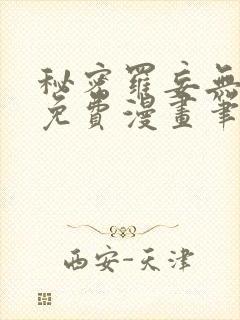 秘密羅妄無
免費漫畫筆
西安-天津